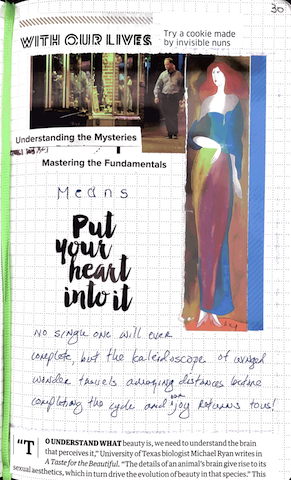 30
WITH OUR LIVES
Try a cookie made
by invisible nuns
Understanding the Mysteries
Mastering the Fundamentals
Means
Put
your
heart
into it
No single one will ever
complete, but the kaleidoscope of winged
wonder travels amazing distances before
completing the cycle and our joy returns to us!
"TO UNDERSTAND WHAT beauty is, we need to understand the brain
that perceives it," University of Texas biologist Michael Ryan writes in
A Taste for the Beautiful. "The details of an animal's brain give rise to its
sexual aesthetics, which in turn drive the evolution of beauty in that species." This